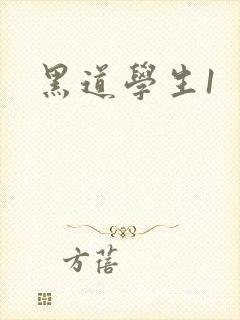 黑道學生1
方蓓